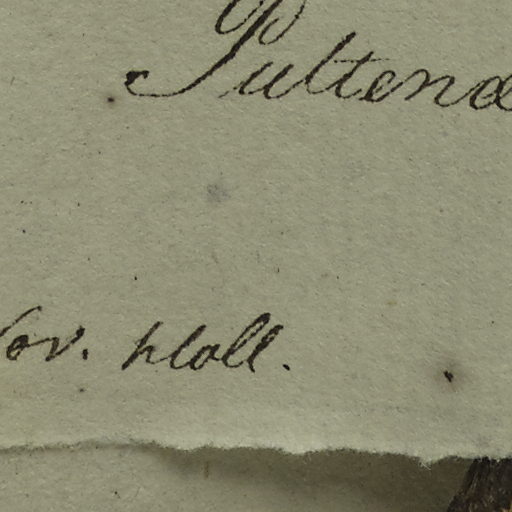 Pultenæ
Nov. Holl.